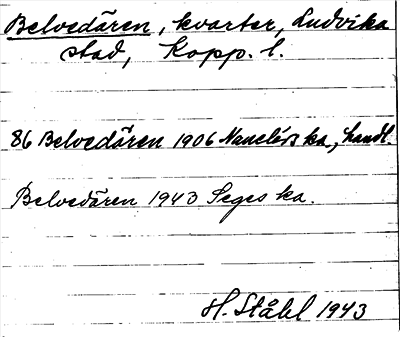 Belvedären, kvarter, Ludvika
stad, Kopp. l.
86 Belvedären 1906 ka, handl.
Belvedären 1943 Seges ka.
H. Ståhl 1943